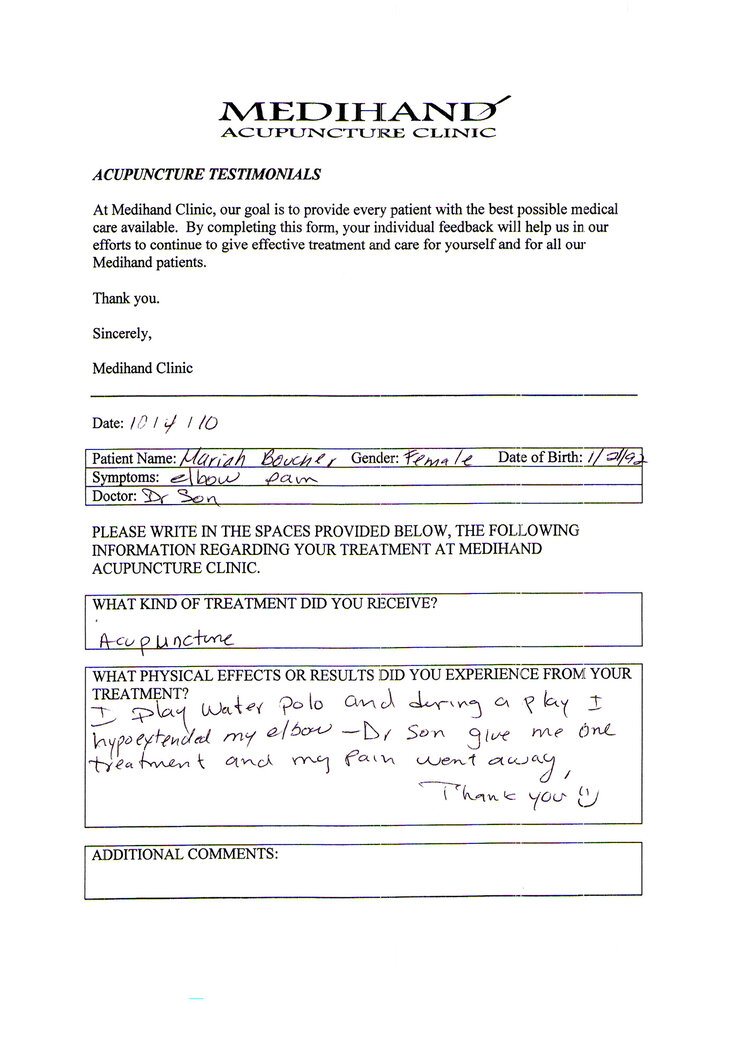 MEDIHAND
ACUPUNCTURE CLINIC
ACUPUNCTURE TESTIMONIALS
At Medihand Clinic, our goal is to provide every patient with the best possible medical
care available. By completing this form, your individual feedback will help us in our
efforts to continue to give effective treatment and care for yourself and for all our
Medihand patients.
Thank you.
Sincerely,
Medihand Clinic
Date: 10/4/10
Patient Name: Mariah Boucher Gender: Female Date of Birth:
Symptoms: elbow pain
Doctor: Dr Son
PLEASE WRITE IN THE SPACES PROVIDED BELOW, THE FOLLOWING
INFORMATION REGARDING YOUR TREATMENT AT MEDIHAND
ACUPUNCTURE CLINIC.
WHAT KIND OF TREATMENT DID YOU RECEIVE?
Acupuncture
WHAT PHYSICAL EFFECTS OR RESULTS DID YOU EXPERIENCE FROM YOUR
TREATMENT?
I play water polo and during a play I
hypoextended my elbow - Dr Son give me one
treatment and my pain went away,
Thank you
ADDITIONAL COMMENTS: